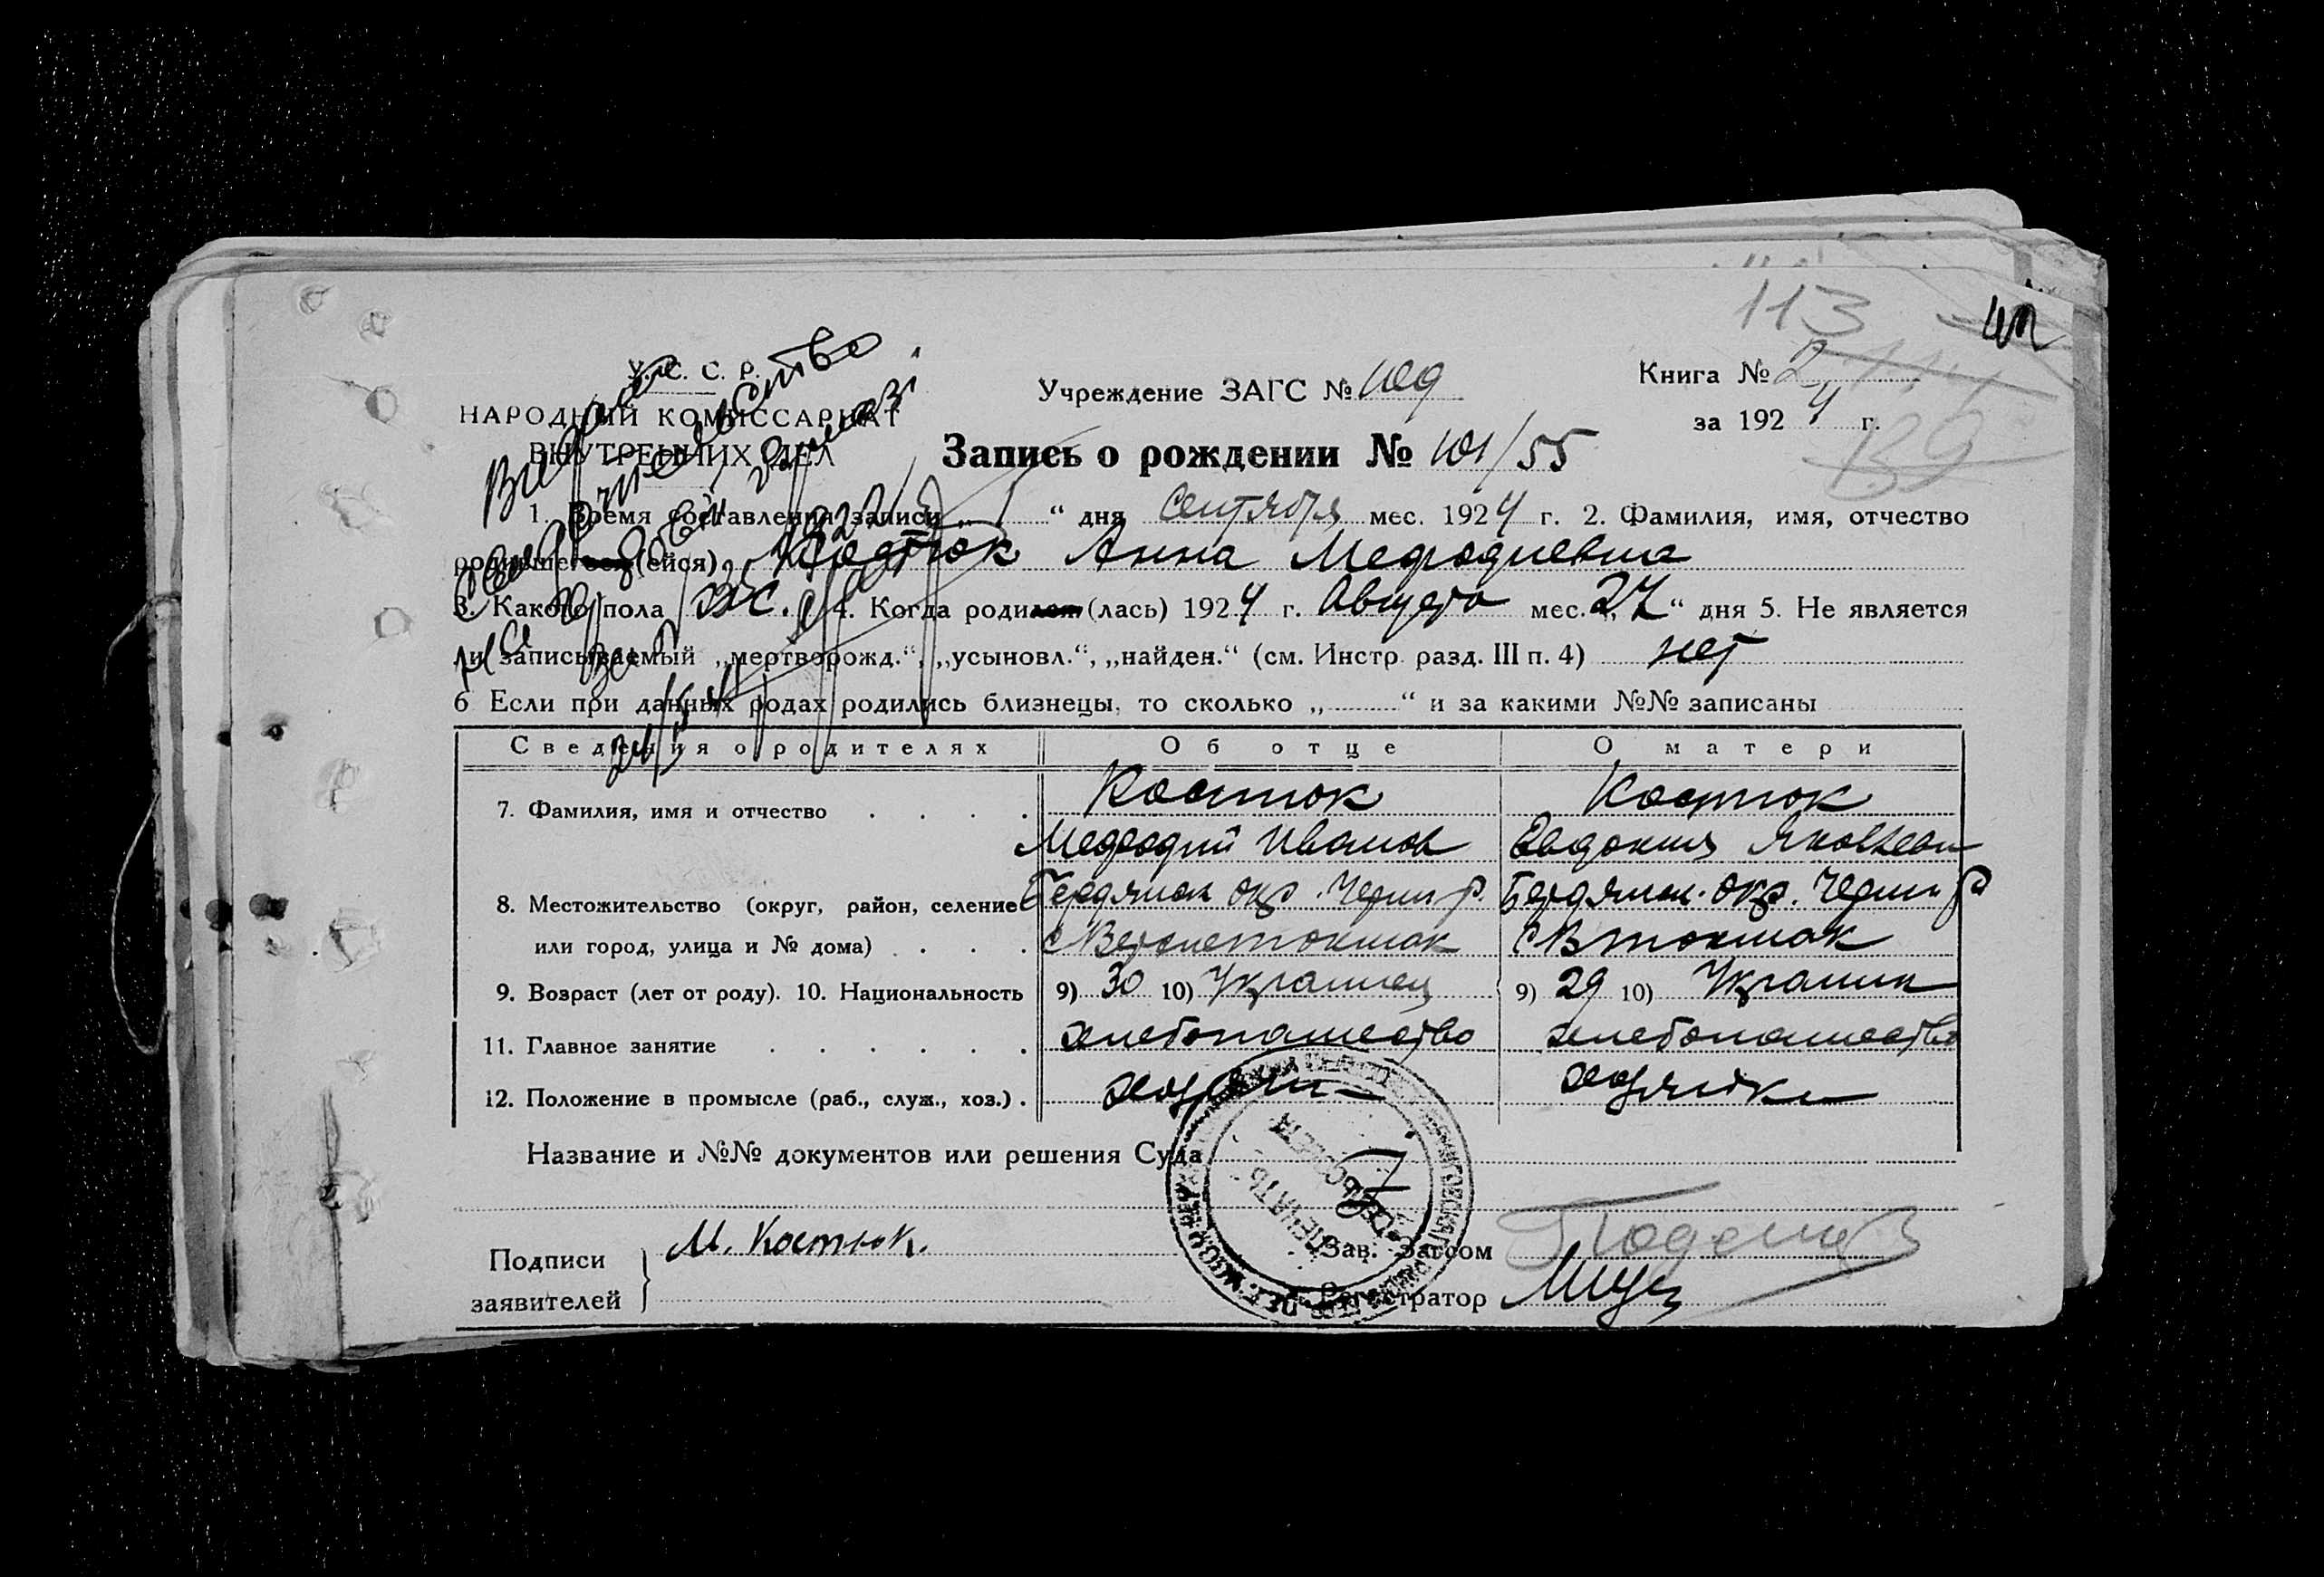 113
У. С. С. Р.
НАРОДНЫЙ КОМИССАРИАТ
ВНУТРЕННИХ ДЕЛ
Учреждение ЗАГС № 109
Книга № 2
за 1924 г.
Запись о рождении № 101/55
1. Время составления записи „1“ дня Сентября мес. 1924 г. 2. Фамилия, имя, отчество
родившегося (ейся) Костюк Анна Мефодиевна
3. Какого пола ж. 4. Когда родился (лась) 1924 г. Августа мес. „27“ дня 5. Не является
ли записываемый „мертворожд.“, „усыновл.“, „найден.“ (см. Инстр. разд. III п. 4) нет
6 Если при данных родах родились близнецы, то сколько „ “ и за какими №№ записаны
Сведения о родителях Об отце О матери
7. Фамилия, имя и отчество Костюк Костюк
Мефодий Иванов Евдокия Яковлевн
8. Местожительство (округ, район, селение Бердянск окр. Черн р. Бердянск. окр. Черн р
или город, улица и № дома) с Верхнетокмак с В токмак
9. Возраст (лет от роду). 10. Национальность 9) 30 10) Украинец 9) 29 10) Украин
11. Главное занятие хлебопашество хлебопашество
12. Положение в промысле (раб., служ., хоз.) хозяин хозяйка
Название и №№ документов или решения Суда
Подписи заявителей М. Костюк.
Зав. Загсом
Регистратор